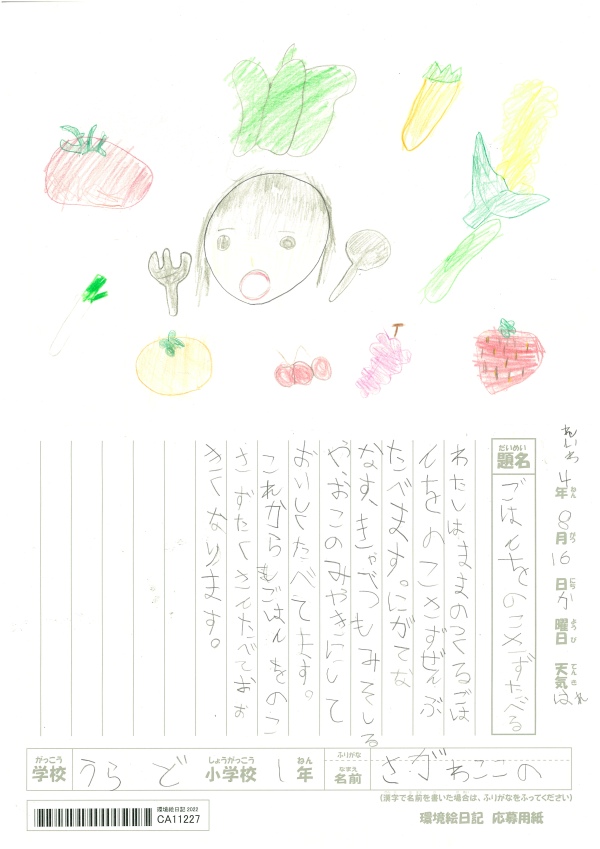 れいわ4年8月16日か曜日 天気はれ
ねん がつ にち ようび てんき
だいめい
題名
ごはんをのこさずたべる
わたしは、ままのつくるごは
んをのこさずぜんぶ
たべます。にがてな
なす、きゃべつもみそしる
や、おこのみやきにして
おいしくたべてます。
これからもごはんをのこ
さずたくさんたべておお
きくなります。
がっこう
学校
うらど
しょうがっこう
小学校
1
ねん
年
ふりがな
なまえ
名前
さがわここの
(漢字で名前を書いた場合は、ふりがなをふってください)
環境絵日記 2022
CA11227
環境絵日記 応募用紙